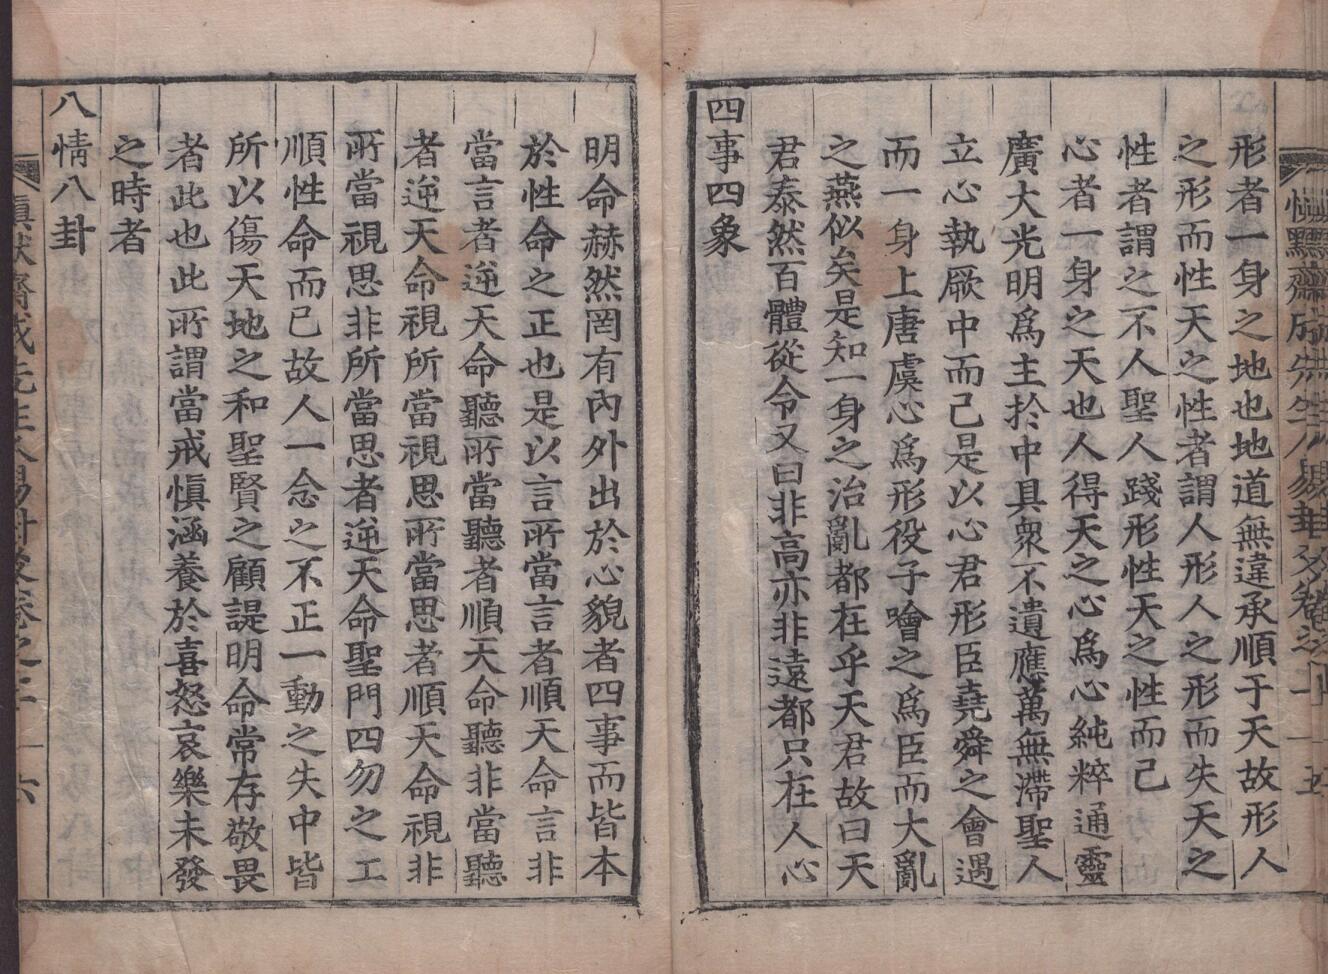 形者一身之地也地道無違承順于天故形人
之形而性天之性者謂人形人之形而失天之
性者謂之不人聖人踐形性天之性而已
心者一身之天也人得天之心爲心純粹通靈
廣大光明爲主於中具衆不遺應萬無滯聖人
立心執厥中而已是以心君形臣堯舜之會遇
而一身上唐虞心爲形役子噲之爲臣而大亂
之燕似矣是知一身之治亂都在乎天君故曰天
君泰然百體從令又曰非高亦非遠都只在人心
四事四象
明命赫然罔有內外出於心貌者四事而皆本
於性命之正也是以言所當言者順天命言非
當言者逆天命聽所當聽者順天命聽非當聽
者逆天命視所當視思所當思者順天命視非
所當視思非所當思者逆天命聖門四勿之工
順性命而已故人一念之不正一動之失中皆
所以傷天地之和聖賢之顧諟明命常存敬畏
者此也此所謂當戒愼涵養於喜怒哀樂未發
之時者
八情八卦